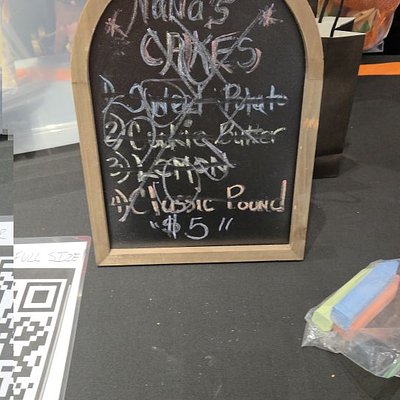 NaNa's
CAKES
1) Sweet Potato
2) Cookie Butter
3) LEMON
4) Classic Pound
"$5"
FULL SIZE